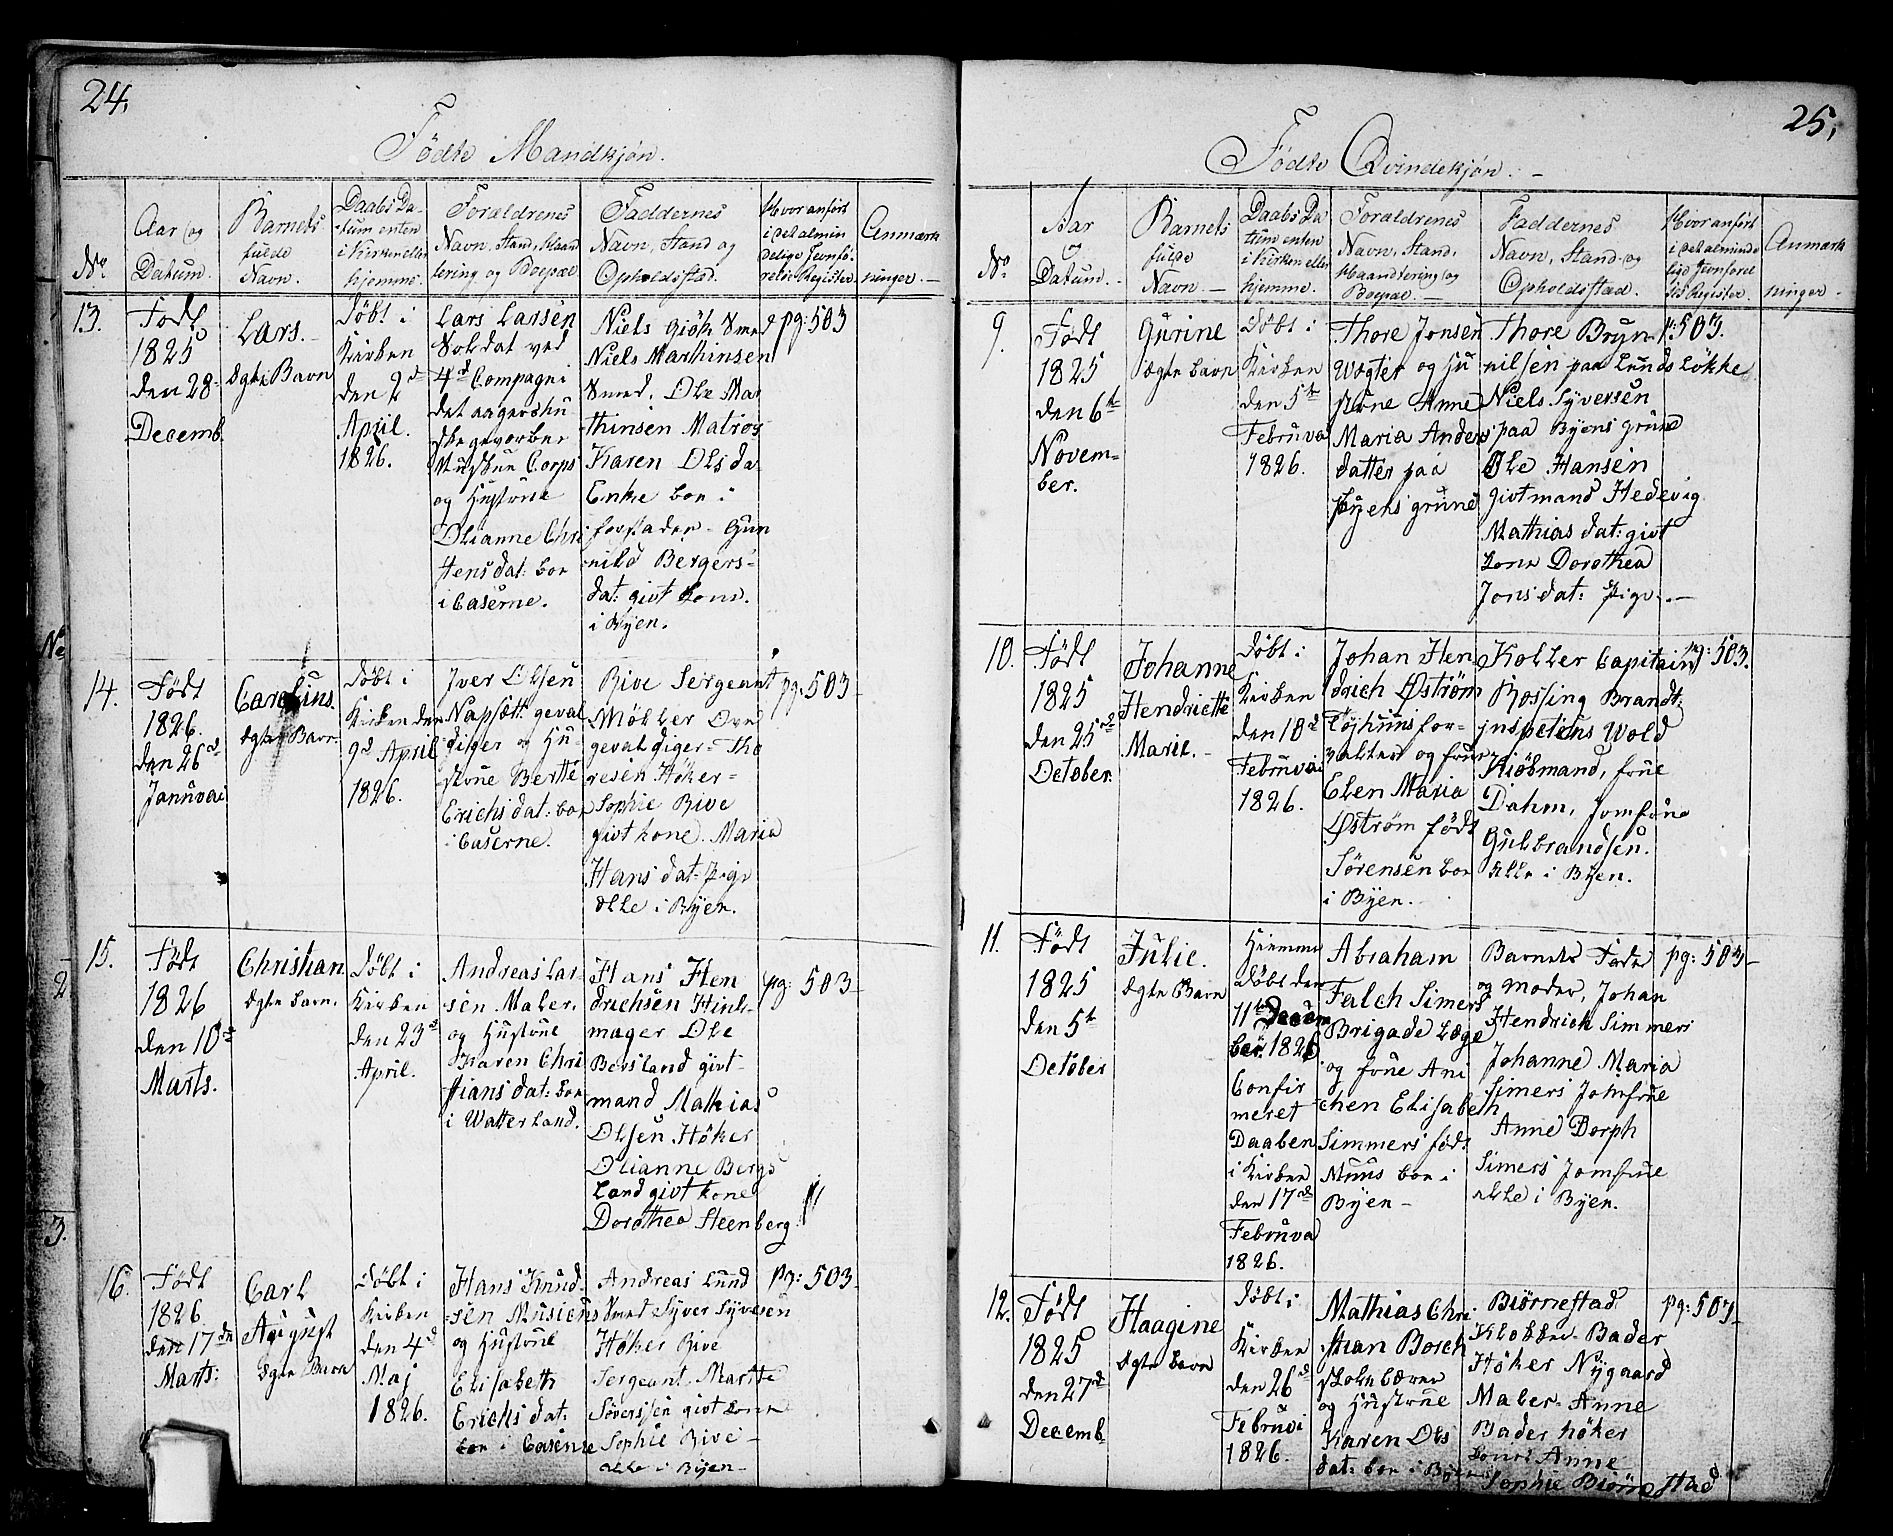 24.
Fødte Mandkjøn.
No.
Aar og
Datum.
Barnets
fulde
Navn.
Daabs Da-
tum enten
i Kirken eller
hjemme.
Forældrenes
Navn, Stand, Haand
tering og Boepæl
Faddernes
Navn, Stand og
Opholdsstad.
Hvor anført
i det almin
delige Jevnfø-
relse Register
Anmærk
ninger.
13.
Født
1825
den 28
Decemb.
Lars.
Ægte Barn
Døbt i
Kirken
den 2d
April.
1826.
Lars Larsen
Soldat ved
4d Compagni
det aagershu
ske gevorbne
Corps
og Hustrue
Olianne Chri
stensdat: boe
i Caserne.
Niels Giøk Smed
Niels Marthinsen
Smed. Ole Mar
thinsen Matros
Karen Olsda
Enke boe i
forstaden - Gun
nild Bergers-
dat: givt kone.
i Byen.
pg: 503
14.
Født
1826.
den 26d
Januvai
Carolius.
Ægte Barn
Døbt i
Kirken den
9d April
1826.
Iver Olsen
Napsætt: geval
diger og Hu-
strue Berthe
Erichsdat: boe
i Caserne.
Rive Sergeant
Møller Ove
gevaldiger - Tho
resen Høker -
Sophie Rive
givt kone. Maria
Hansdat: Pige
alle i Byen.
pg: 503
15.
Født
1826
den 10d
Marts.
Christian
Ægte barn.
Døbt i
Kirken
den 23d
April.
Andreas Lar-
sen Maler
og Hustrue
Karen Chri
stiansdat: boe
i Watterland.
Hans Hen
drichsen Hiul-
mager Ole
Bersland givt-
mand Mathias
Olsen Høker
Olianne Bergs
land givt kone
Dorothea Steenberg
pg: 503
16.
Født
1826.
den 17de
Marts:
Carl
August
Ægte Barn
Døbt i
Kirken
den 4d
Maj
1826.
Hans Knud-
sen Musicus
og Hustrue
Elisabeth
Erichsdat:
boe i Caserne
Andreas Lund
Smed Syver Syversen
Høker Rive
Sergeant. Marthe
Søverssen givt kone
Sophie Rive -
alle i Byen -
pg: 503
25,
Fødte Qvindekjøn.
No.
Aar
og
Datum.
Barnets
fulde
Navn.
Daabs Da
tum enten
i Kirken eller
hjemme.
Forældrenes
Navn, Stand,
Haandtering og
Boepæl.
Faddernes
Navn, Stand og
Opholdsstad.
Hvor anført
i det alminde
lige Jevnførel
ses Register.
Anmærk
ninger.
9.
Født
1825
den 6te
Novem-
ber.
Gurine
Ægte barn
Døbt i
Kirken
den 5te
Februva
1826.
Thore Jonsen
Wægter og Hu
strue Anne
Maria Anders
datter paa
Byens grund
Thore Bryn-
nilsen paa Lunds Løkke
Niels Syversen
paa Byens grund
Ole Hansen
givtmand Hedevig
Mathiasdat: givt
kone Dorothea
Jonsdat: Pige.
p: 503.
10.
Født
1825
den 25de
October.
Johanne
Hendriette
Marie.
Døbt i
Kirken
den 18d
Februvai
1826.
Johan Hen-
drich Østrøm
Tøyhuusfor-
valter og frue
Elen Maria
Østrøm født
Sørensen boe
i Byen.
Koller Capitain
Rossing Brandt
inspecteus Wold
Kiøbmand, frue
Dahm, Jomfrue
Gulbrandsen.
Alle i Byen.
pg: 503.
11.
Født
1825
den 5te
October
Julie.
Ægte Barn
Hiemme
døbt den
11te Decem
ber 1825
Confir
meret
Daaben
i Kirken
den 17de
Februva
1826.
Abraham
Falch Simers
Brigade Læge
og frue Ani
chen Elisabeth
Simmers født
Muus boe i
Byen -
Barnets Fader
og Moder, Johan
Hendrich Simmers
Johanne Maria
Simers Jomfrue
Anne Dorph
Simers Jomfrue
alle i Byen.
pg: 503
12.
Født
1825
den 27de
Decemb.
Haagine
Ægte barn
Døbt i
Kirken
den 26d
Februvi
1826.
Mathias Chri
stian Borch
Skolelærer
og Hustrue
Karen Ols
dat: boe i Byen
Biørnestad
Klokker - Bader
Høker Nygaard
Maler - Anne
Bader høker
kone Anne
Sophie Biørnestad
pg: 503
No
2
3.